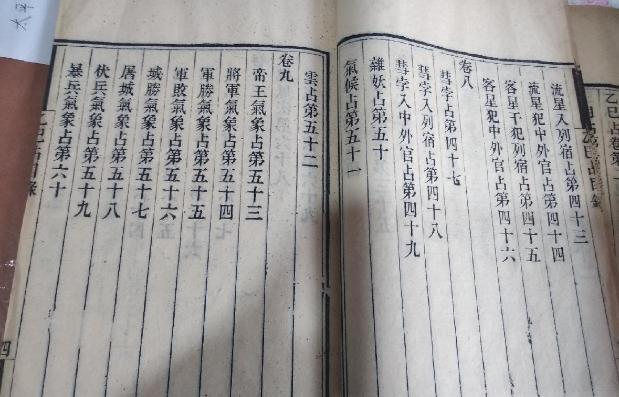 流星入列宿占第四十三
流星犯中外官占第四十四
客星干犯列宿占第四十五
客星犯中外官占第四十六
卷八
彗孛占第四十七
彗孛入列宿占第四十八
彗孛入中外官占第四十九
雜妖占第五十
氣候占第五十一
雲占第五十二
卷九
帝王氣象占第五十三
將軍氣象占第五十四
軍勝氣象占第五十五
軍敗氣象占第五十六
城勝氣象占第五十七
屠城氣象占第五十八
伏兵氣象占第五十九
暴兵氣象占第六十
乙巳占目錄
四